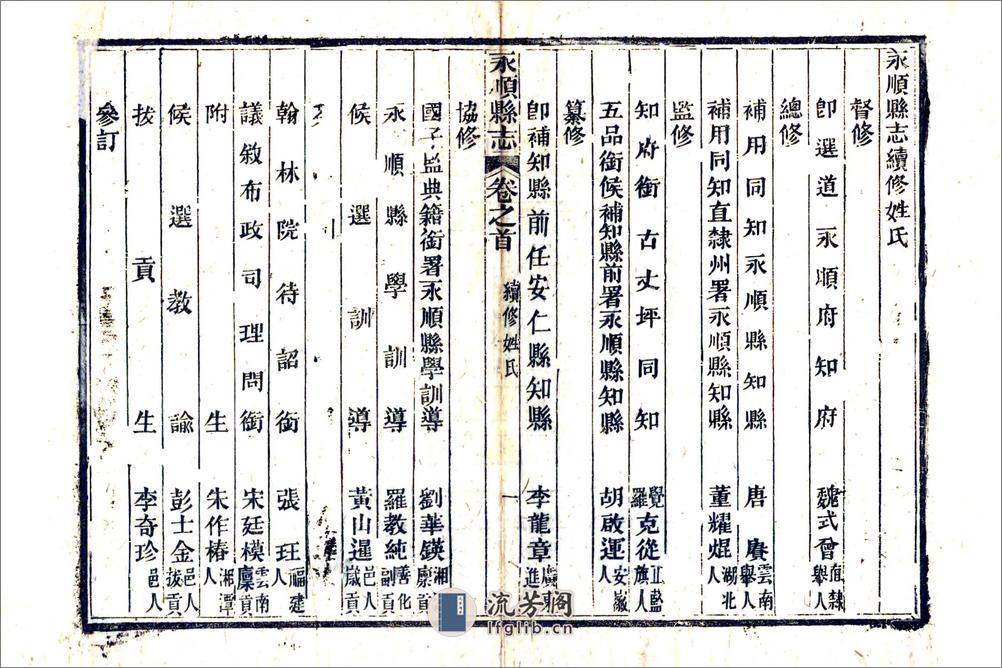 永順縣志續修姓氏
督修
卽選道永順府知府 魏式曾 直隸舉人
總修
補用同知永順縣知縣 唐賡 雲南舉人
補用同知直隸州署永順縣知縣 董耀焜 湖北人
監修
知府銜古丈坪同知 覺羅克從 正藍旗人
五品銜候補知縣前署永順縣知縣 胡啟運 安徽人
纂修
卽補知縣前任安仁縣知縣 李龍章 廣東進
永順縣志 卷之首 續修姓氏 一
協修
國子監典籍銜署永順縣學訓導 劉華鍈 湘 廩貢
永順縣學訓導 羅教純 善化副
候選訓導 黃山暹 邑人歲貢
翰林院待詔銜 張玨 福建人
議敘布政司理問銜 宋廷模 雲南廩貢
附生 朱作椿 湘潭人
候選教諭 彭士金 邑人拔貢
拔貢生 李奇珍 邑人
參訂
流芳閣
lfglib.cn